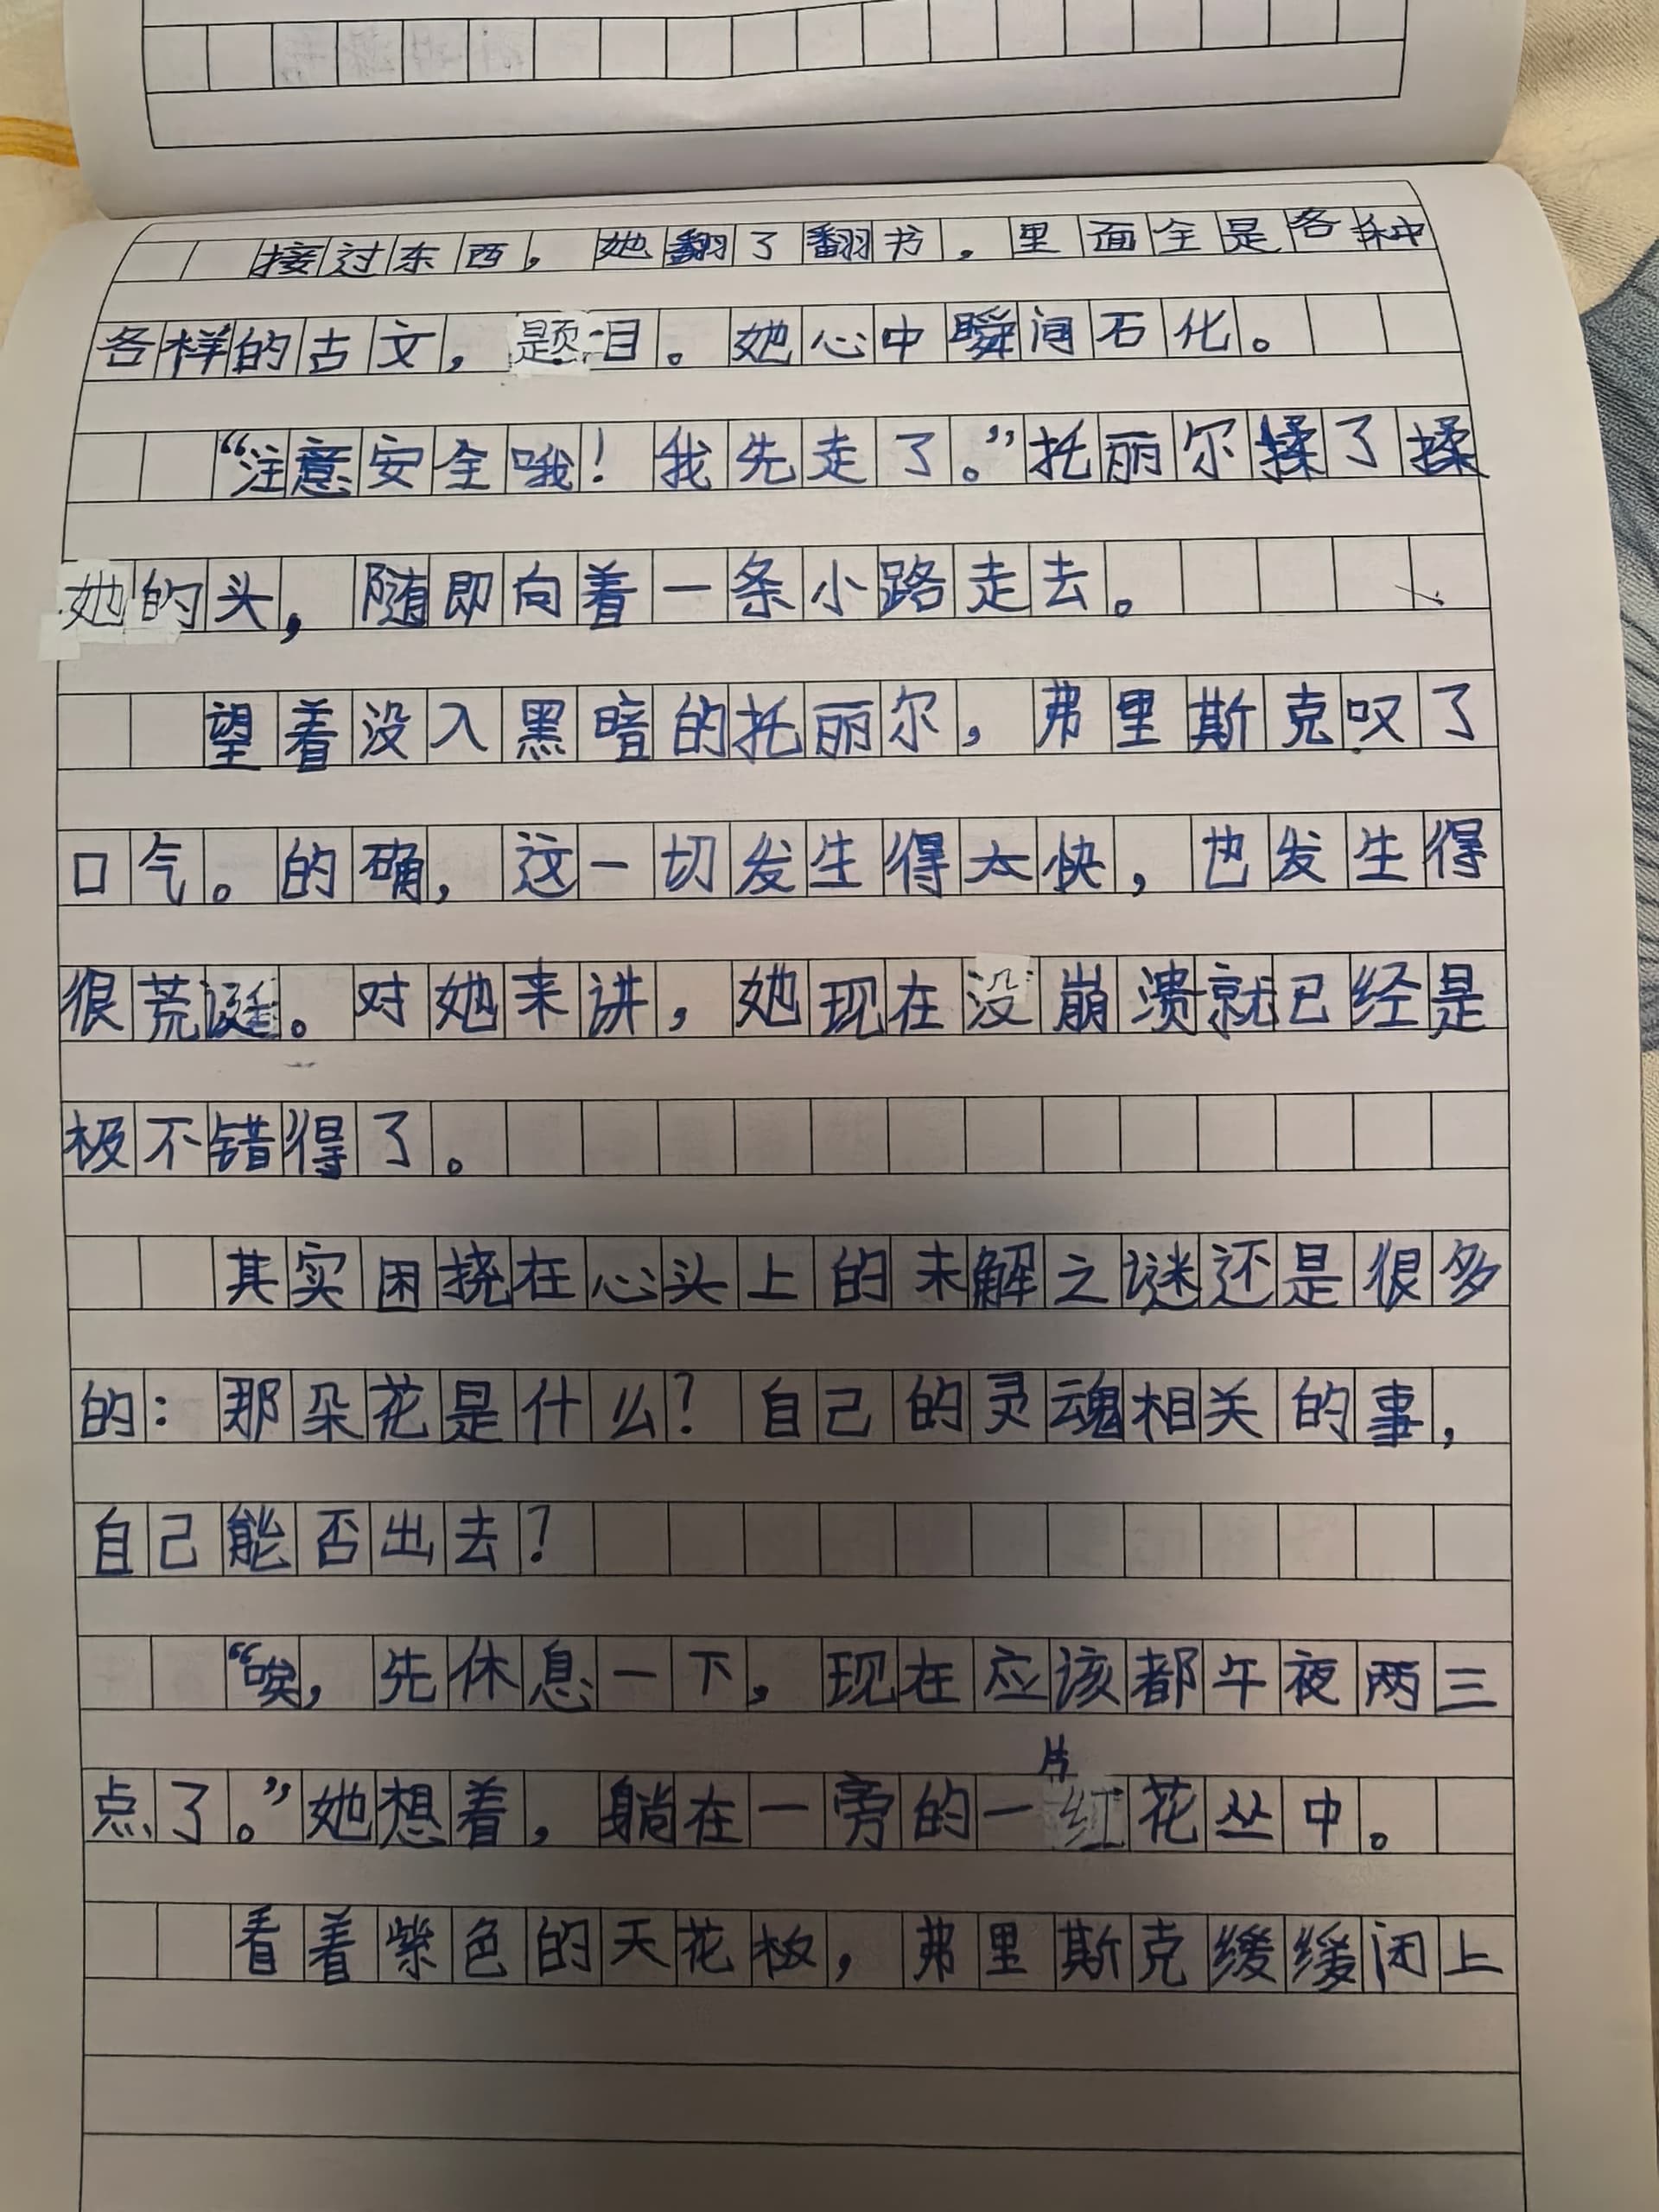 接过东西，她翻了翻书，里面全是各种
各样的古文，题目。她心中瞬间石化。
“注意安全哦！我先走了。”托丽尔揉了揉
她的头，随即向着一条小路走去。
望着没入黑暗的托丽尔，弗里斯克叹了
口气。的确，这一切发生得太快，也发生得
很荒诞。对她来讲，她现在没崩溃就已经是
极不错得了。
其实困挠在心头上的未解之谜还是很多
的：那朵花是什么？自己的灵魂相关的事，
自己能否出去？
“唉，先休息一下，现在应该都午夜两三
点了。”她想着，躺在一旁的一片红花丛中。
看着紫色的天花板，弗里斯克缓缓闭上